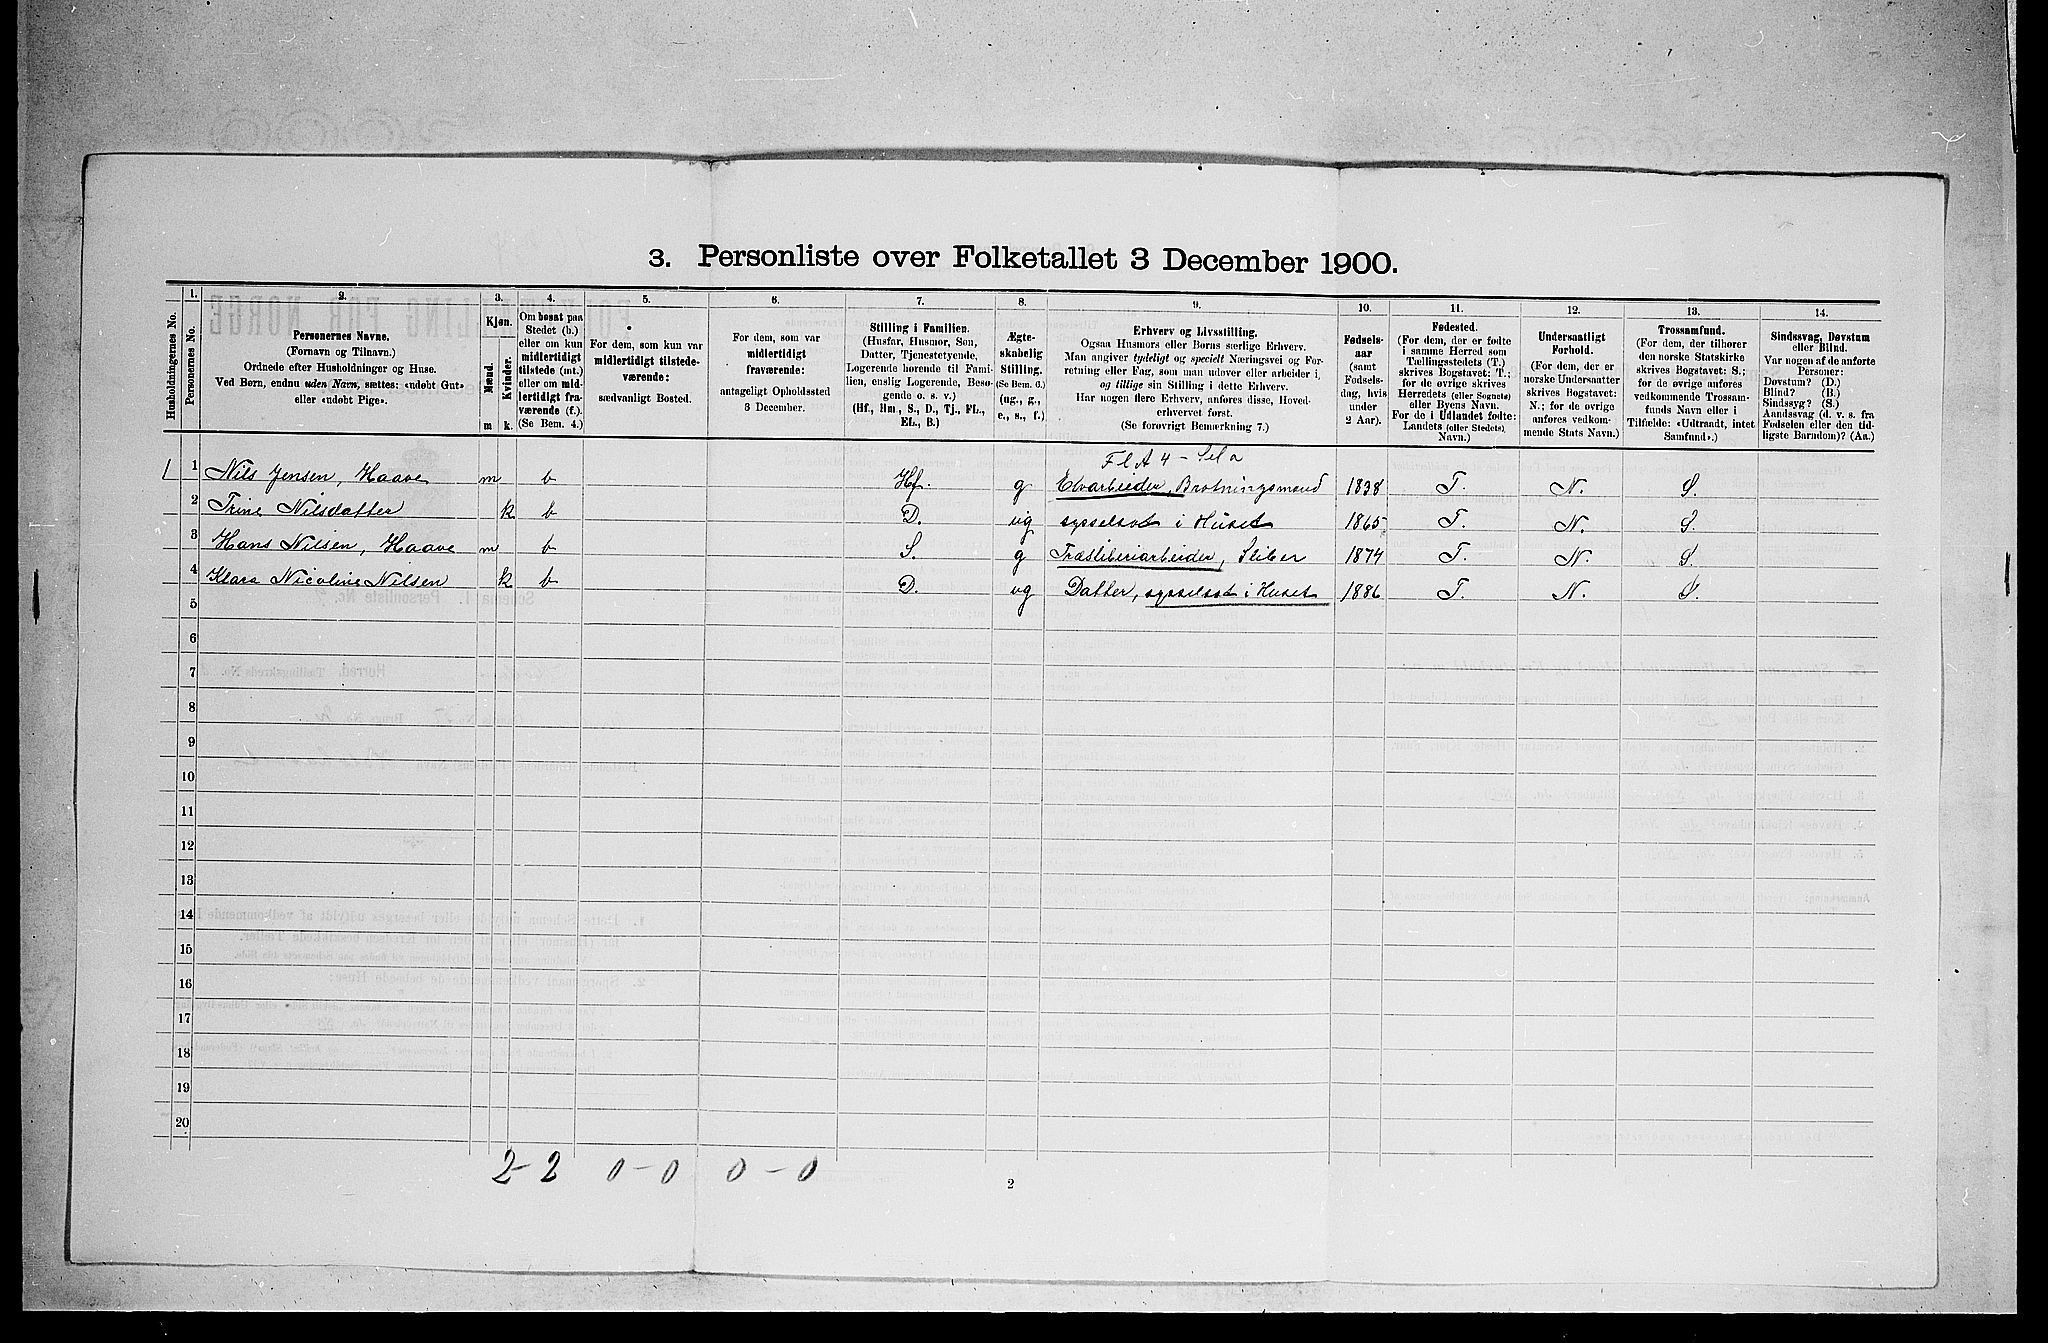 3. Personliste over Folketallet 3 December 1900.
Husholdningernes No.
1.
Personernes No.
2.
Personernes Navne.
(Fornavn og Tilnavn.)
Ordnede efter Husholdninger og Huse.
Ved Børn, endnu uden Navn, sættes: «udøbt Gut»
eller «udøbt Pige».
3.
Kjøn.
Mænd.
Kvinder.
m k.
4.
Om bosat paa
Stedet (b.)
eller om kun
midlertidigt
tilstede (mt.)
eller om mid-
lertidigt fra-
værende (f.).
(Se Bem. 4.)
5.
For dem, som kun var
midlertidigt tilstede-
værende:
sædvanligt Bosted.
6.
For dem, som var
midlertidigt
fraværende:
antageligt Opholdssted
3 December.
7.
Stilling i Familien.
(Husfar, Husmor, Søn,
Datter, Tjenestetyende,
Logerende hørende til Fami-
lien, enslig Logerende, Besø-
gende o. s. v.)
(Hf., Hm., S., D., Tj., FL.,
EL., B.)
8.
Ægte-
skabelig
Stilling.
(Se Bem. 6.)
(ug., g.,
e., s., f.)
9.
Erhverv og Livsstilling.
Ogsaa Husmors eller Børns særlige Erhverv.
Man angiver tydeligt og specielt Næringsvei og For-
retning eller Fag, som man udøver eller arbeider i,
og tillige sin Stilling i dette Erhverv.
Har nogen flere Erhverv, anføres disse, Hoved-
erhvervet først.
(Se forøvrigt Bemærkning 7.)
10.
Fødsels-
aar
(samt
Fødsels-
dag, hvis
under
2 Aar).
11.
Fødested.
(For dem, der er fødte
i samme Herred som
Tællingsstedets (T.)
skrives Bogstavet: T.;
for de øvrige skrives
Herredets (eller Sognets)
eller Byens Navn.
For de i Udlandet fødte:
Landets (eller Stedets)
Navn.)
12.
Undersaatligt
Forhold.
(For dem, der er
norske Undersaatter
skrives Bogstavet:
N.; for de øvrige
anføres vedkom-
mende Stats Navn.)
13.
Trossamfund.
(For dem, der tilhører
den norske Statskirke
skrives Bogstavet: S.;
for de øvrige anføres
vedkommende Trossam-
funds Navn eller i
Tilfælde: «Udtraadt, intet
Samfund».)
14.
Sindssvag, Døvstum
eller Blind.
Var nogen af de anførte
Personer:
Døvstum? (D.)
Blind? (B.)
Sindssyg? (S.)
Aandssvag (d. v. s. fra
Fødselen eller den tid-
ligste Barndom)? (Aa.)
Fl A 4 -
1 1 Nils Jensen, Haave m b Hf. g Elvarbeider, Brotningsmand 1838 T. N. S.
2 Trine Nilsdatter k b D. ug sysselsat i Huset 1865 T. N. S.
3 Hans Nilsen, Haave m b S. g Træsliberiarbeider, Sliber 1874 T. N. S.
4 Klara Nicoline Nilsen k b D. ug Datter, sysselsat i Huset 1886 T. N. S.
5
6
7
8
9
10
11
12
13
14
15
16
17
18
19
20
2-2 0-0 0-0
2